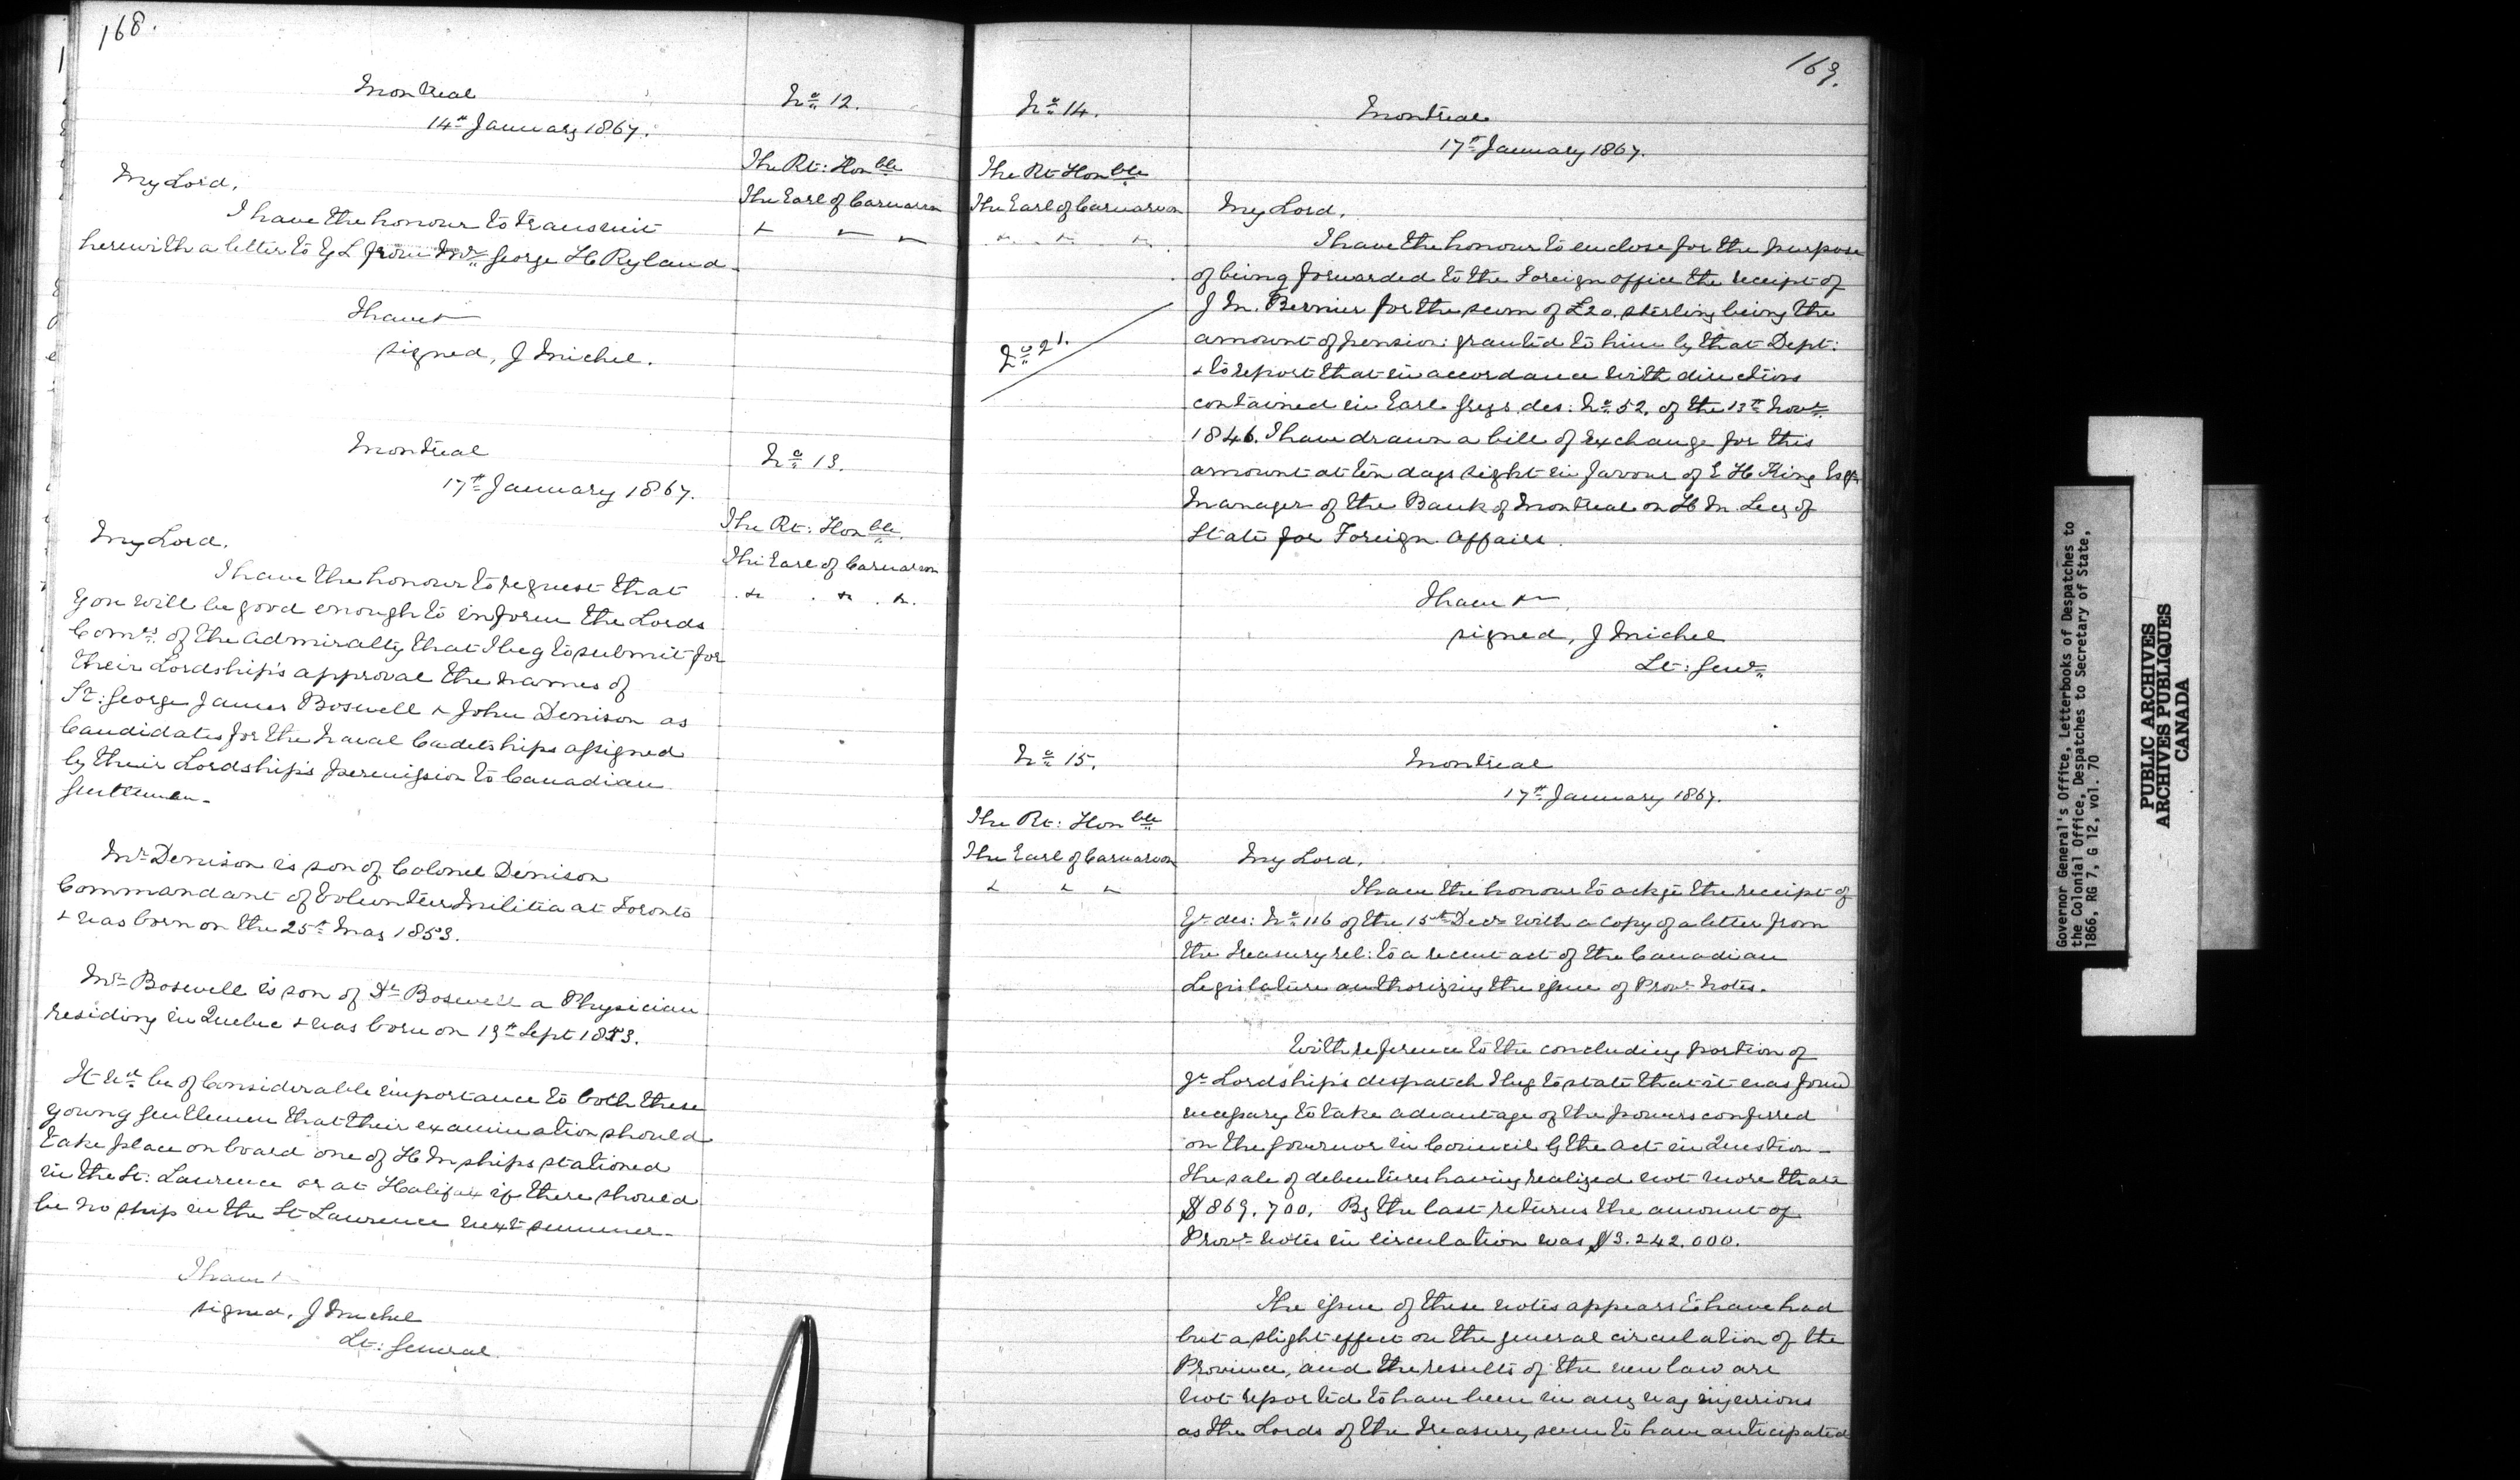 168.
Montreal
14th January 1867.
No 12.
The Rt: Honble
The Earl of Carnarvon
My Lord,
I have the honour to transmit
herewith a letter to Y L from Mr George H Ryland.
I have &
signed, J Michel.
Montreal
17th January 1867.
No 13.
The Rt: Honble.
The Earl of Carnarvon
My Lord.
I have the honour to request that
you will be good enough to inform the Lords
Comrs of the Admiralty that I beg to submit for
their Lordship's approval the names of
St: George James Boswell & John Denison as
Candidates for the Naval Cadetships assigned
by their Lordship's permission to Canadian
Gentlemen.
Mr Denison is son of Colonel Denison
Commandant of Volunteer Militia at Toronto
& was born on the 25th May 1853.
Mr Boswell is son of Dr Boswell a Physician
residing in Quebec & was born on 13th Sept 1853.
It wd be of considerable importance to both these
young gentlemen that their examination should
take place on board one of H M ships stationed
in the St: Lawrence or at Halifax if there should
be no ship in the St Lawrence next summer.
I have &
signed, J Michel
Lt: General.
169.
No 14.
Montreal
17th January 1867.
The Rt Honble
The Earl of Carnarvon
My Lord.
I have the honour to enclose for the purpose
of being forwarded to the Foreign office the receipt of
J M. Bernier for the sum of £20. sterling being the
amount of pension granted to him by that Dept:
& to report that in accordance with directions
contained in Earl Greys des: No 52. of the 13th Novr
1846. I have drawn a bill of exchange for this
amount at ten days sight in favour of E H King Esqr
Manager of the Bank of Montreal on H M Secy of
State for Foreign Affairs.
I have &
signed, J Michel
Lt: Genl
No 15.
Montreal
17th January 1867.
The Rt: Honble
The Earl of Carnarvon
My Lord.
I have the honour to ackge the receipt of
Yr des: No 116 of the 15th Decr with a copy of a letter from
the Treasury rel: to a recent act of the Canadian
Legislature authorizing the issue of Provl Notes.
With reference to the concluding portion of
yr Lordship's despatch I beg to state that it was found
necessary to take advantage of the powers conferred
on the Governor in Council by the act in Question.
The sale of debentures having realized not more than
$869.700. By the last returns the amount of
Provl notes in circulation was $3.242.000.
The issue of these notes appears to have had
but a slight effect on the general circulation of the
Province, and the results of the new law are
not reported to have been in any way injurious
as the Lords of the Treasury seem to have anticipated
Governor General's Office, Letterbooks of Despatches to
the Colonial Office, Despatches to Secretary of State,
1866, RG 7, G 12, vol. 70
PUBLIC ARCHIVES
ARCHIVES PUBLIQUES
CANADA